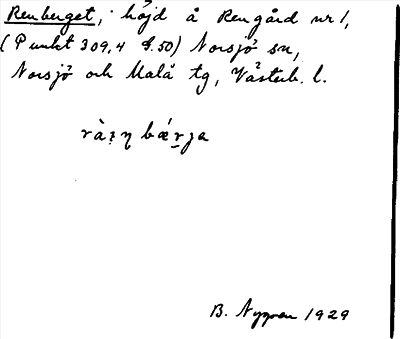 Renberget, höjd å Rengård nr 1,
(Punkt 309,4 f.50) Norsjö sn,
Norsjö och Malå tg, Västerb. l.
rὰṇ bǽrja
B. Nygren 1929